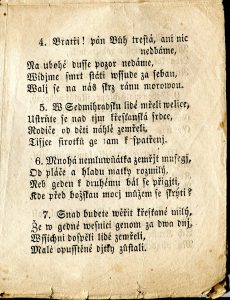 4. Bratři! pán Bůh trestá, ani nic
nedbáme,
Na ubohé dusse pozor nedáme,
Widjme smrt státi wssude za sebau,
Walj se na nás skrz ránu morowou.
5. W Sedmihradsku lidé mřeli welice,
Ustrňte se nad tjm křesťanská srdce,
Rodiče od dětj náhle zemřeli,
Tisjce sirotků ge tam k spatřenj.
6. Mnohá nemluwňátka zemřjt musegj,
Od pláče a hladu matky rozumily,
Neb geden k druhému bál se přigjti,
Kde před božskau mocj můžem se skrýti?
7. Snad budete wěřit křesťané milý,
Že w gedné wesnici genom za dwa dnj,
Wssichni dospělj lidé zemřeli,
Malé opusstěné djtky zůstali.